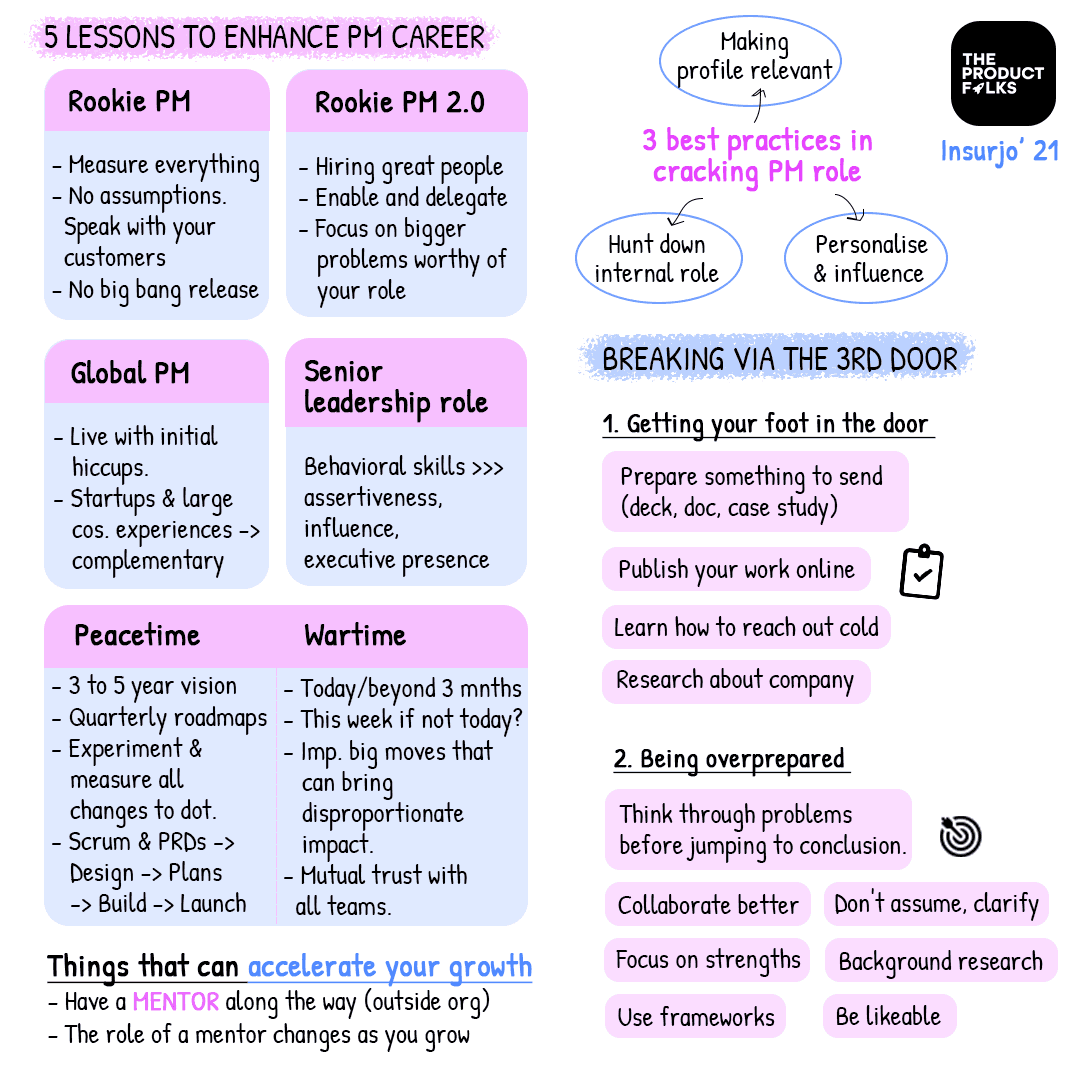 5 LESSONS TO ENHANCE PM CAREER
Rookie PM
- Measure everything
- No assumptions.
Speak with your
customers
- No big bang release
Rookie PM 2.0
- Hiring great people
- Enable and delegate
- Focus on bigger
problems worthy of
your role
Global PM
- Live with initial
hiccups.
- Startups & large
cos. experiences ->
complementary
Senior
leadership role
Behavioral skills >>>
assertiveness,
influence,
executive presence
Peacetime
- 3 to 5 year vision
- Quarterly roadmaps
- Experiment &
measure all
changes to dot.
- Scrum & PRDs ->
Design -> Plans
-> Build -> Launch
Wartime
- Today/beyond 3 mnths
- This week if not today?
- Imp. big moves that
can bring
disproportionate
impact.
- Mutual trust with
all teams.
Things that can accelerate your growth
- Have a MENTOR along the way (outside org)
- The role of a mentor changes as you grow
Making
profile relevant
3 best practices in
cracking PM role
Hunt down
internal role
Personalise
& influence
THE
PRODUCT
FOLKS
Insurjo' 21
BREAKING VIA THE 3RD DOOR
1. Getting your foot in the door
Prepare something to send
(deck, doc, case study)
Publish your work online
Learn how to reach out cold
Research about company
2. Being overprepared
Think through problems
before jumping to conclusion.
Collaborate better
Don't assume, clarify
Focus on strengths
Background research
Use frameworks
Be likeable